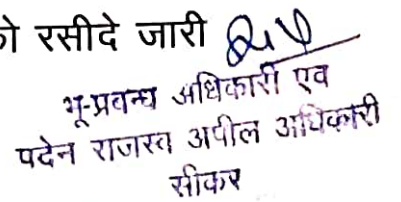 को रसीदे जारी
भू-प्रबन्ध अधिकारी एव
पदेन राजस्व अपील अधिकारी
सीकर